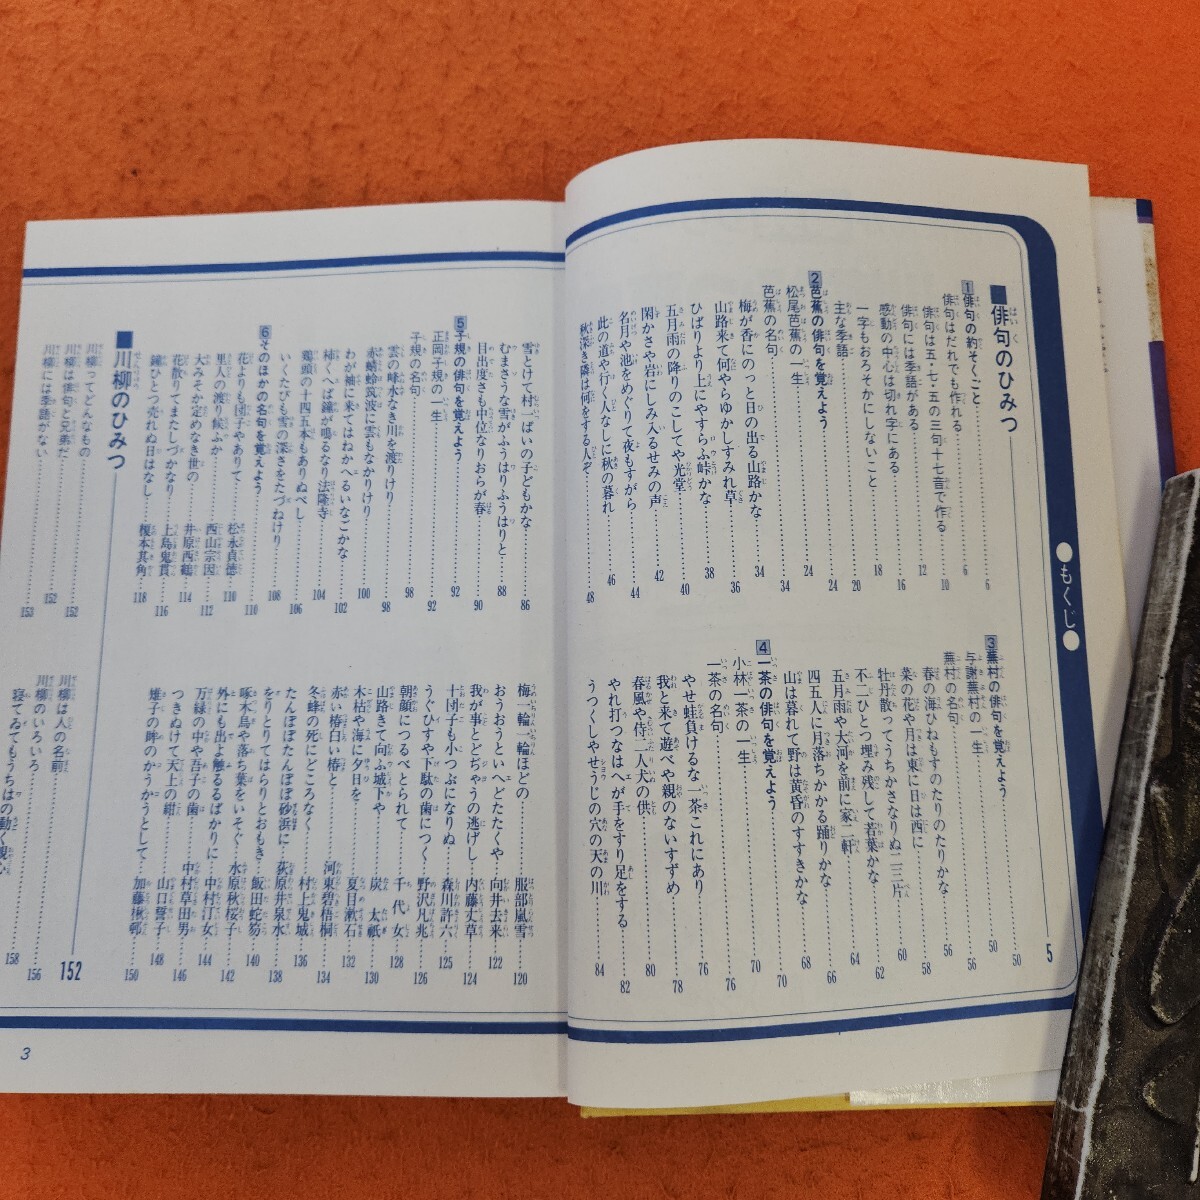 ●もくじ●
■俳句のひみつ 5
1 俳句の約そくごと 6
俳句はだれでも作れる 6
俳句は五・七・五の三句十七音で作る 10
俳句には季語がある 12
感動の中心は切れ字にある 16
一字もおろそかにしないこと 18
主な季語 20
2 芭蕉の俳句を覚えよう 24
松尾芭蕉の一生 24
芭蕉の名句 34
梅が香にのっと日の出る山路かな 34
山路来て何やらゆかしすみれ草 36
ひばりより上にやすらふ峠かな 38
五月雨の降りのこしてや光堂 40
閑かさや岩にしみ入るせみの声 42
名月や池をめぐりて夜もすがら 44
此の道や行く人なしに秋の暮れ 46
秋深き隣は何をする人ぞ 48
3 蕪村の俳句を覚えよう 50
与謝蕪村の一生 50
蕪村の名句 56
春の海ひねもすのたりのたりかな 56
菜の花や月は東に日は西に 58
牡丹散ってうちかさなりぬ二三片 60
不二ひとつ埋み残して若葉かな 62
五月雨や大河を前に家二軒 64
四五人に月落ちかかる踊りかな 66
山は暮れて野は黄昏のすすきかな 68
4 一茶の俳句を覚えよう 70
小林一茶の一生 70
一茶の名句 76
やせ蛙負けるな一茶これにあり 76
我と来て遊べや親のないすずめ 78
春風や侍二人犬の供 80
やれ打つなはへが手をすり足をする 82
うつくしやせうじの穴の天の川 84
雪とけて村一ぱいの子どもかな 86
むまさうな雪がふうはりふうはりと 88
目出度さも中位なりおらが春 90
5 子規の俳句を覚えよう 92
正岡子規の一生 92
子規の名句 98
雲の峰水なき川を渡りけり 98
赤蜻蛉筑波に雲もなかりけり 100
わが袖に来てはねかへるいなごかな 102
柿くへば鐘が鳴るなり法隆寺 104
鶏頭の十四五本もありぬべし 106
いくたびも雪の深さをたづねけり 108
6 そのほかの名句を覚えよう 110
花よりも団子やありて 松永貞徳 110
里人の渡り候ふか 西山宗因 112
大みそか定めなき世の 井原西鶴 114
花散りてまたしづかなり 上島鬼貫 116
鐘ひとつ売れぬ日はなし 榎本其角 118
梅一輪一輪ほどの 服部嵐雪 120
おうおうといへどたたくや 向井去来 122
我が事とどぢゃうの逃げし 内藤丈草 124
十団子も小つぶになりぬ 森川許六 125
うぐひすや下駄の歯につく 野沢凡兆 126
朝顔につるべとられて 千代女 128
山路きて向ふ城下や 炭太祇 130
木枯や海に夕日を 夏目漱石 132
赤い椿白い椿と 河東碧梧桐 134
冬蜂の死にどころなく 村上鬼城 136
たんぽぽたんぽぽ砂浜に 荻原井泉水 138
をりとりてはらりとおもき 飯田蛇笏 140
啄木鳥や落ち葉をいそぐ 水原秋桜子 142
外にも出よ触るるばかりに 中村汀女 144
万緑の中や吾子の歯 中村草田男 146
つきぬけて天上の紺 山口誓子 148
雉子の眸のかうかうとして 加藤楸邨 150
■川柳のひみつ 152
川柳ってどんなもの 152
川柳は俳句と兄弟だ 152
川柳には季語がない 153
川柳は人の名前 156
川柳のいろいろ 158
寝てゐてもうちはの動く親心
3